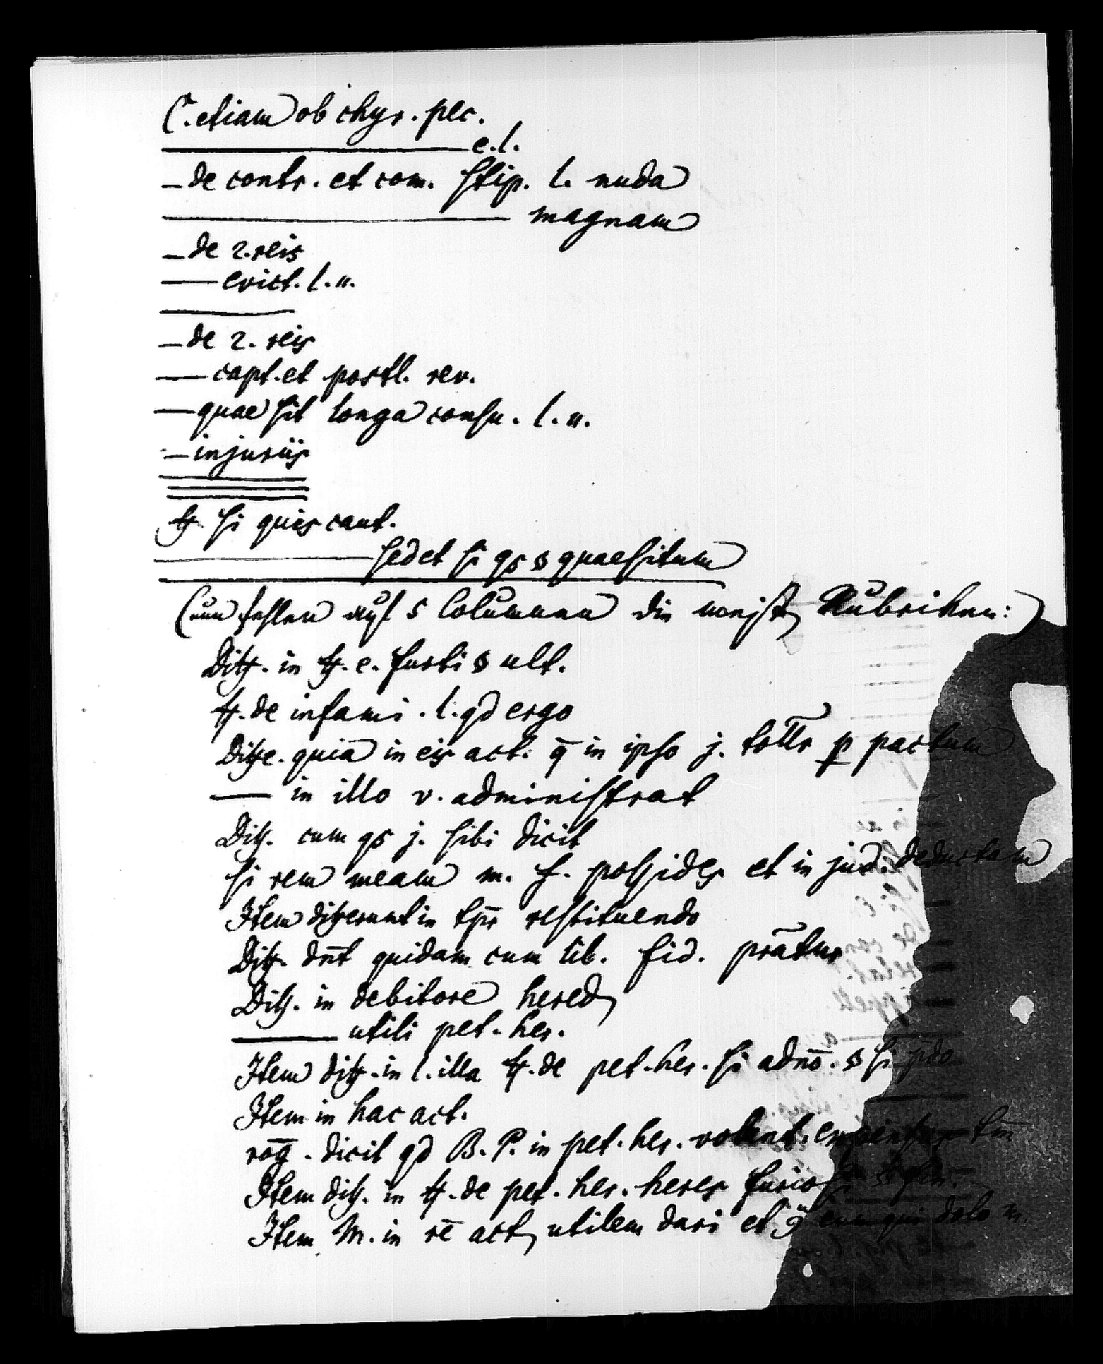 C. etiam ob chyr. pec.
e. l.
— de contr. et com. stip. l. nuda
magnam
— de 2. reis
— evict. l. u.
— de 2. reis
— capt. et postl. rev.
— quae sit longa consu. l. u.
— injuriis
ff. si quis caut.
sed et si qs § quaesitum
(nun fehlen auf 5 Columnen die meist Rubriken:)
Dix. in ff. e. furti § ult.
ff. de infami. l. qd ergo
Dixe. quia in eis act. q̄ in ipso j. tollr p pactum
— in illo v. administrat
Dix. cum qs j. sibi dicit
si rem meam m. f. possides et in jud. deductam
Item dixerunt in tpr restituendo
Dix. dn̄t quidam cum lib. fid. prātur
Dix. in debitore hered
— utili pet. her.
Item dix. in l. illa ff. de pet. her. si adno. § si pdo
Item in hac act.
rog. dicit qd B. P. in pet. her. tm̄
Item dix. in ff. de pet. her. heres furiosi
Item M. in rē act utilem dari et dolo